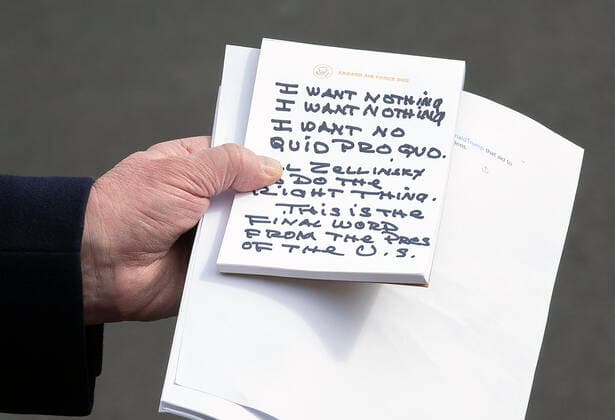 ABOARD AIR FORCE ONE
I WANT NOTHING
I WANT NOTHING
I WANT NO
QUID PRO QUO.
L ZELLINSKY
DO THE
RIGHT THING.
THIS IS THE
FINAL WORD
FROM THE PRES
OF THE U.S.
naldTrump that aid to